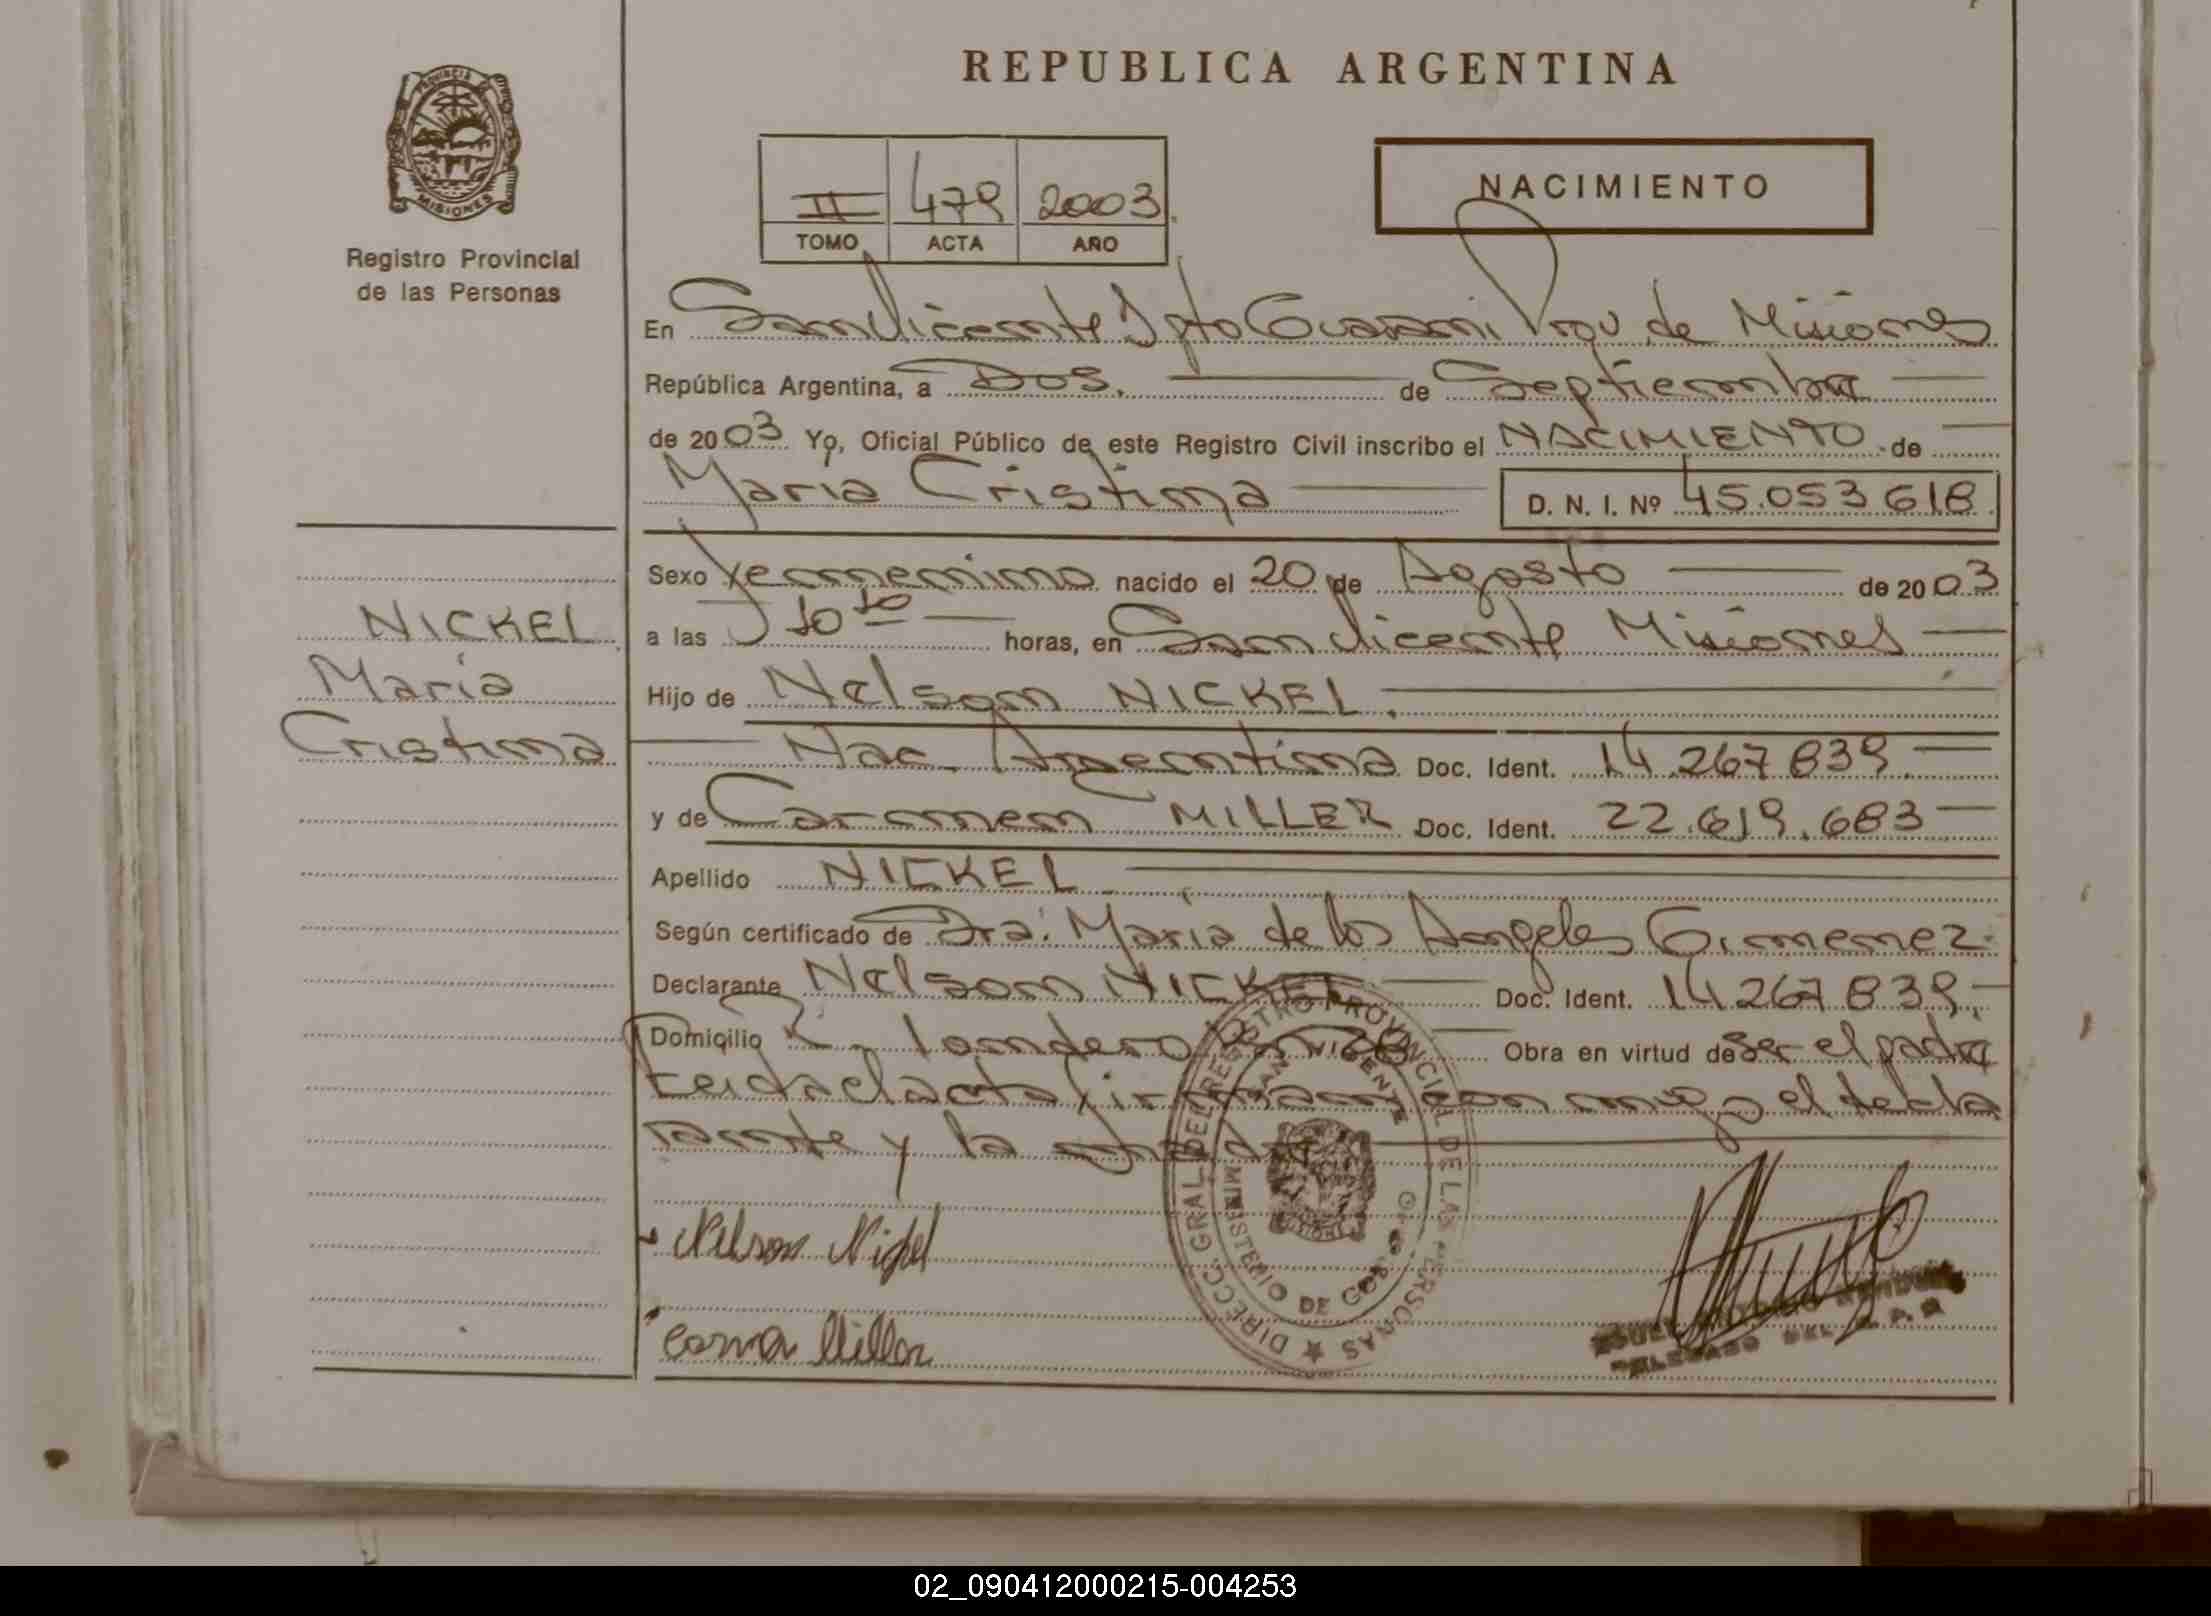 REPUBLICA ARGENTINA
PROVINCIA
MISIONES
Registro Provincial
de las Personas
II 479 2003
TOMO ACTA AÑO
NACIMIENTO
En San Vicente Dpto Guarani Prov. de Misiones
República Argentina, a Dos. de Septiembre
de 2003 Yo, Oficial Público de este Registro Civil inscribo el NACIMIENTO de
Maria Cristina D. N. I. Nº 45.053 618
Sexo femenino nacido el 20 de Agosto de 2003
a las 10 10 horas, en San Vicente Misiones
NICKEL
Maria
Cristina
Hijo de Nelson NICKEL.
Nac. Argentina Doc. Ident. 14.267 839.
y de Carmen MILLER Doc. Ident. 22.619.683
Apellido NICKEL
Según certificado de Dra. Maria de los Angeles Gimenez.
Declarante Nelson NICKEL Doc. Ident. 14 267 839.
Domicilio Obra en virtud de Ser el padre
Leida el acta firman con migo el decla
rante y la madre
Nelson Nickel
Miller
DIRECC. GRAL. DEL REGISTRO PROVINCIAL DE LAS PERSONAS
SAN VICENTE
MINISTERIO DE GOB.
DELEGADO DEL
02_090412000215-004253